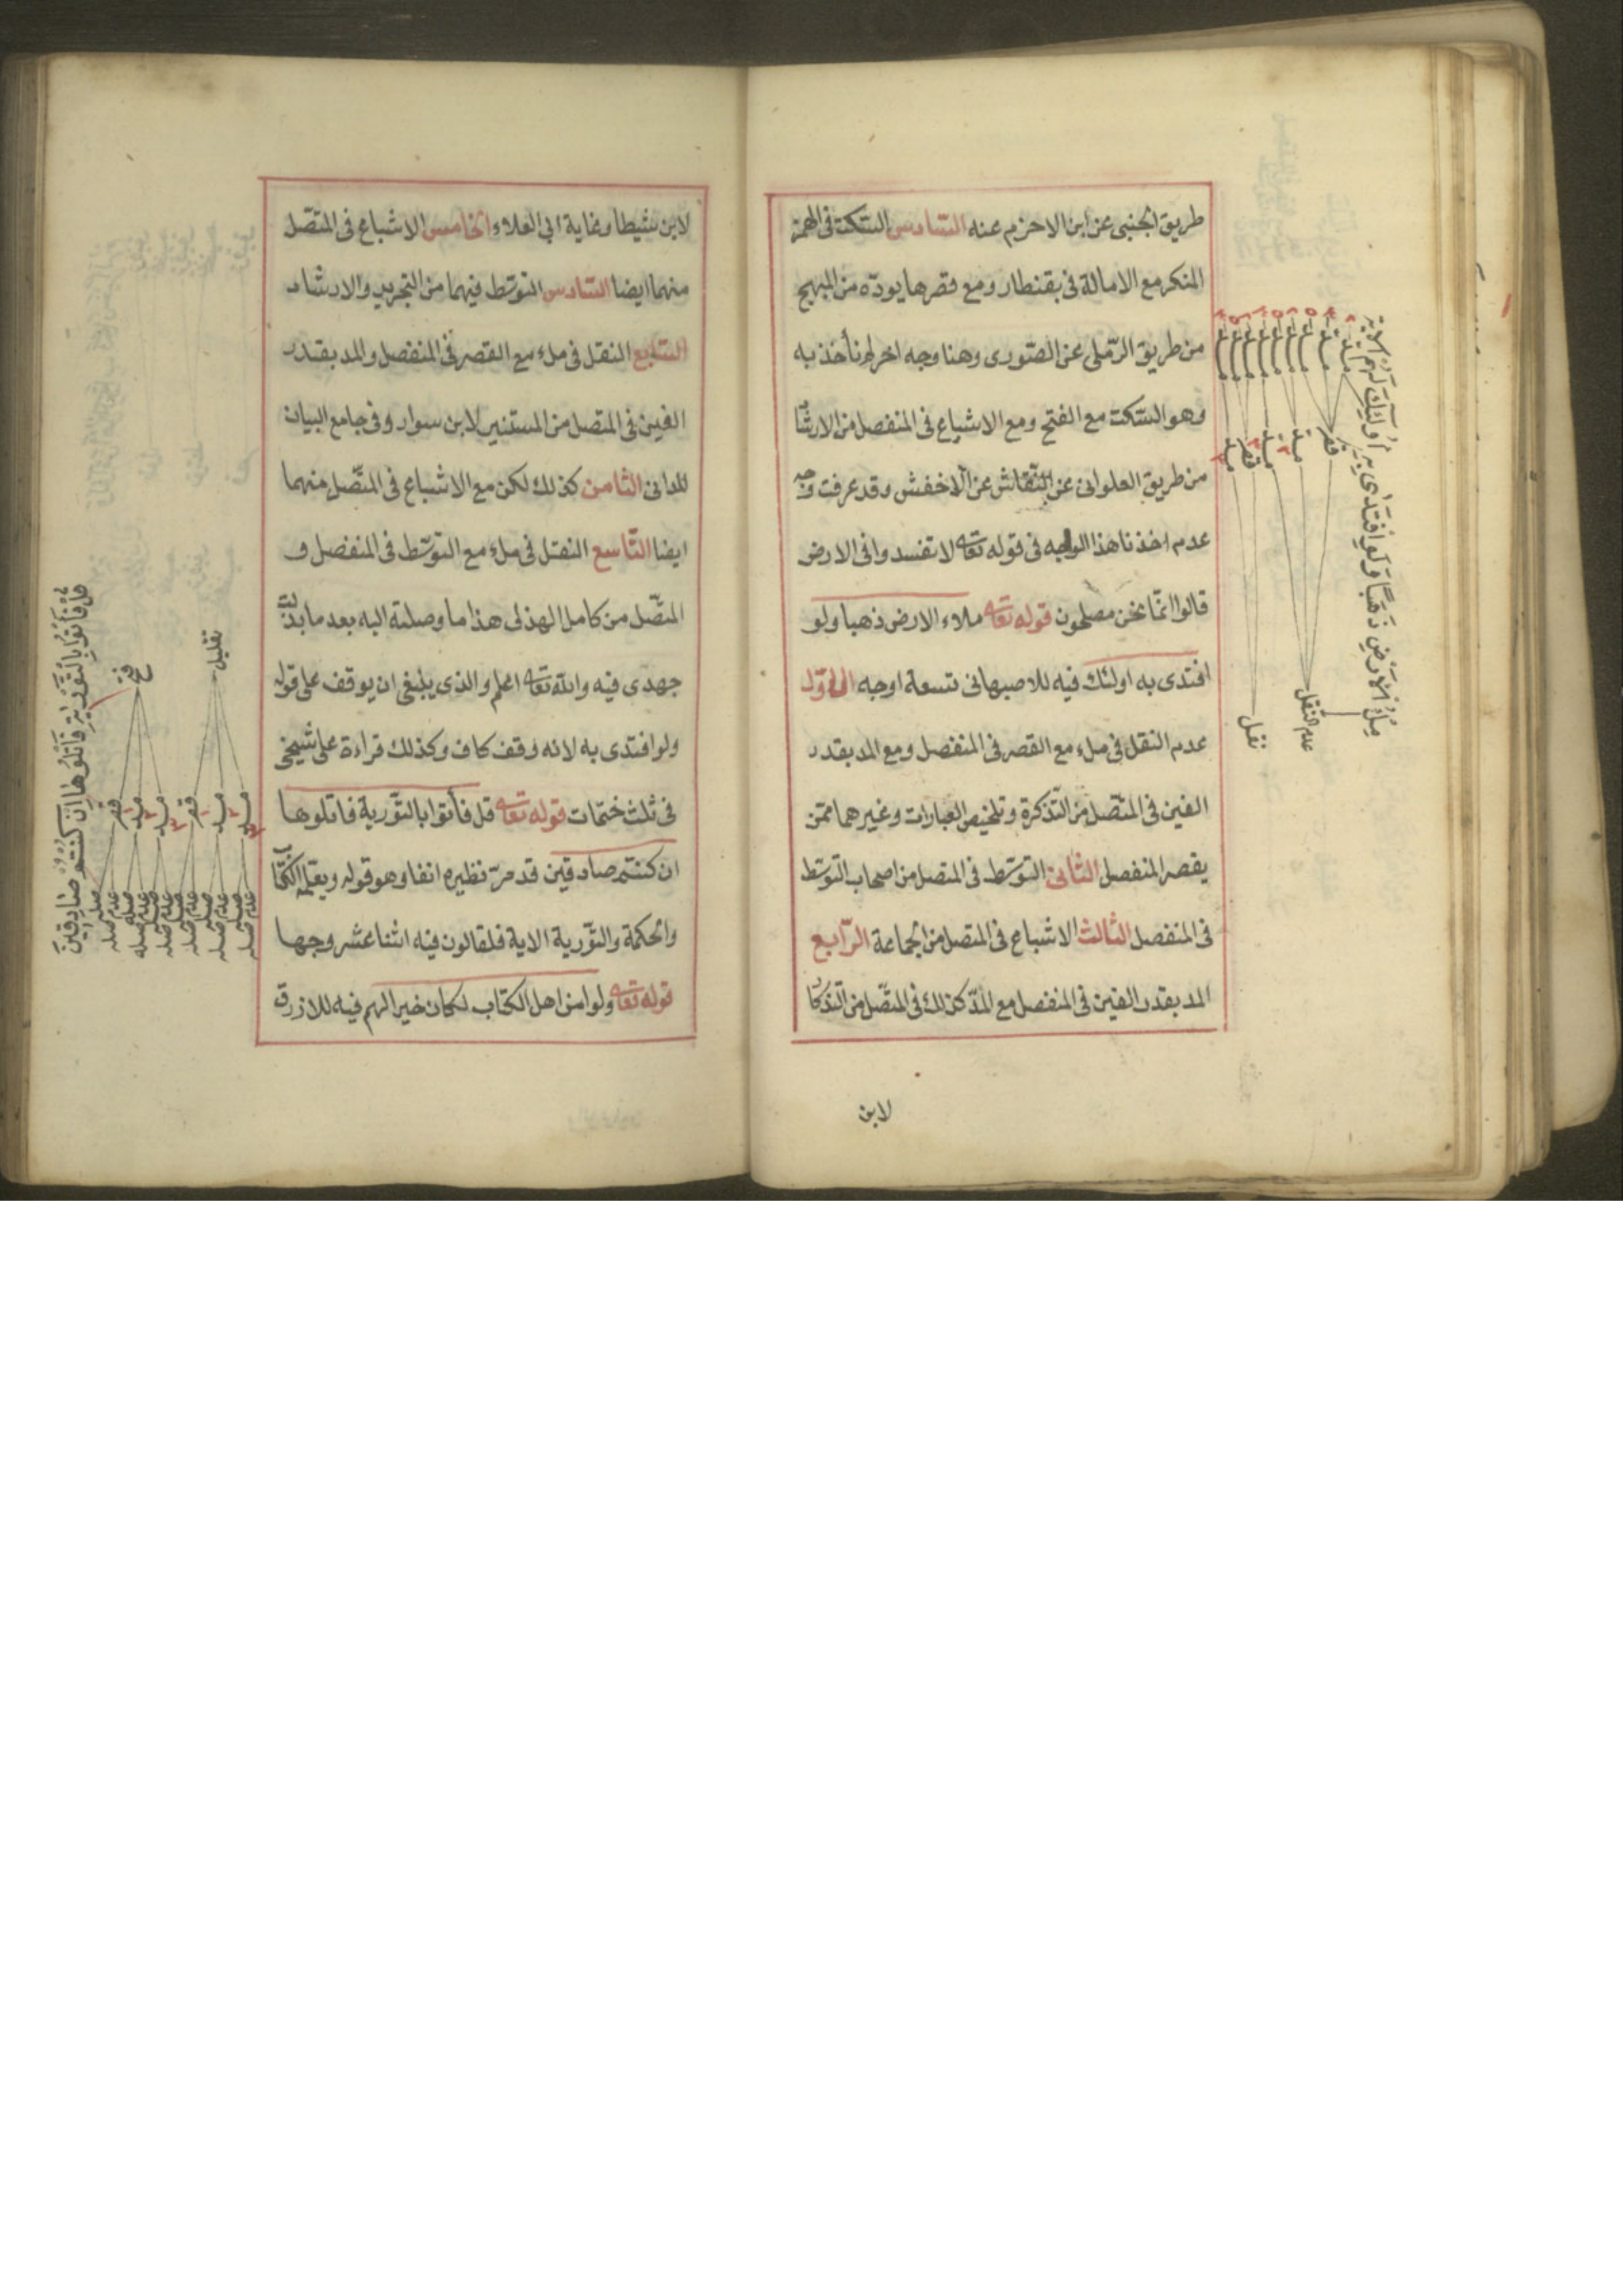 طريق الجنبى عن ابن الاخرم عنه السادس السكت فى الهمز
المنكر مع الامالة فى بقنطار ومع قصرها يوده من المبهج
من طريق الرملى عن الصورى وهنا وجه اخر لم نأخذ به
وهو السكت مع الفتح ومع الاشباع فى المنفصل من الارشا
من طريق العلوانى عن النقاش عن الاخفش وقد عرفت وجه
عدم اخذنا هذا الوجه فى قوله تعالى لا تفسدوا فى الارض
قالوا انما نحن مصلحون قوله تعالى ملاء الارض ذهبا ولو
افتدى به اولئك فيه للاصبهانى تسعة اوجه الاول
عدم النقل فى ملء مع القصر فى المنفصل ومع المد بقدر
الفين فى المتصل من التذكرة وتلخيص العبارات وغيرهما ممن
يقصر المنفصل الثانى التوسط فى المتصل من اصحاب التوسط
فى المنفصل الثالث الاشباع فى المتصل من الجماعة الرابع
المد بقدر الفين فى المنفصل مع المد كذلك فى المتصل من التذكا
لابن
ملء الارض ذهبا ولو افتدى به اولئك لهم الآية
عدم النقل
نقل
قصر
مد
مد
قصر
مد
لابن شيطا وغاية ابي العلاء الخامس الاشباع فى المتصل
منهما ايضا السادس التوسط فيهما من التجريد والارشاد
السابع النقل فى ملء مع القصر فى المنفصل والمد بقدر
الفين فى المتصل من المستنير لابن سوار وفى جامع البيان
للدانى الثامن كذلك لكن مع الاشباع فى المتصل منهما
ايضا التاسع النقل فى ملء مع التوسط فى المنفصل و
المتصل من كامل الهذلى هذا ما وصلت اليه بعد ما بذلت
جهدى فيه والله تعالى اعلم والذى ينبغى ان يوقف على قوله
ولو افتدى به لانه وقف كاف وكذلك قراءة على شيخى
فى ثلث ختمات قوله تعالى قل فأتوا بالتورية فاتلوها
ان كنتم صادقين قد مر نظيره انفا وهو قوله ويعلمه الكتا
والحكمة والتورية الاية فلقالون فيه اثنا عشر وجها
قوله تعالى ولو امن اهل الكتاب لكان خيرا لهم فيه للازرق
قل فأتوا بالتورية فاتلوها ان كنتم صادقين
فتح
تقليل
قصر
مد
مد
قصر
مد
مد
صله
عدم صله
صله
عدم صله
صله
عدم صله
صله
عدم صله
صله
عدم صله
صله
عدم صله